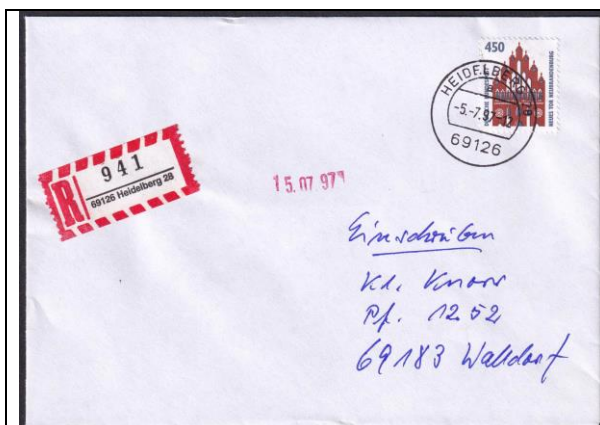 450
NEUES TOR NEUBRANDENBURG
HEIDELBERG
-5.-7.97-12
69126
R
941
69126 Heidelberg 28
15.07.97
Einschreiben
Kd. Knorr
Pf. 1252
69183 Walldorf